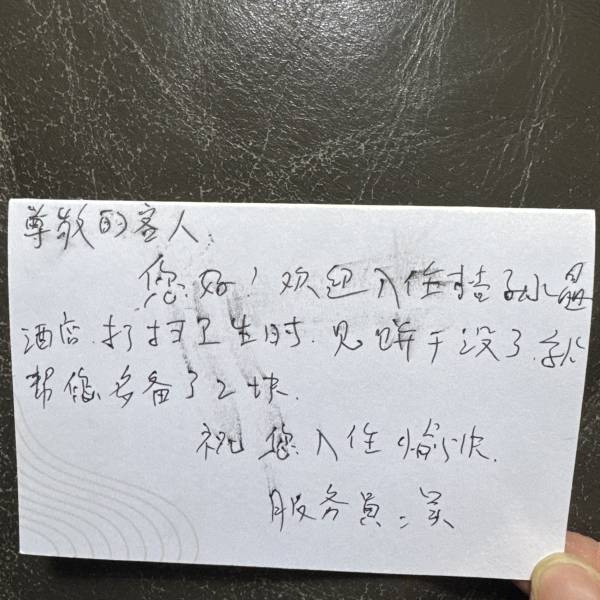 尊敬的客人:
您好!欢迎入住桔子水晶
酒店.打扫卫生时.见饼干没了.就
帮您多备了2块.
祝您入住愉快.
服务员:吴